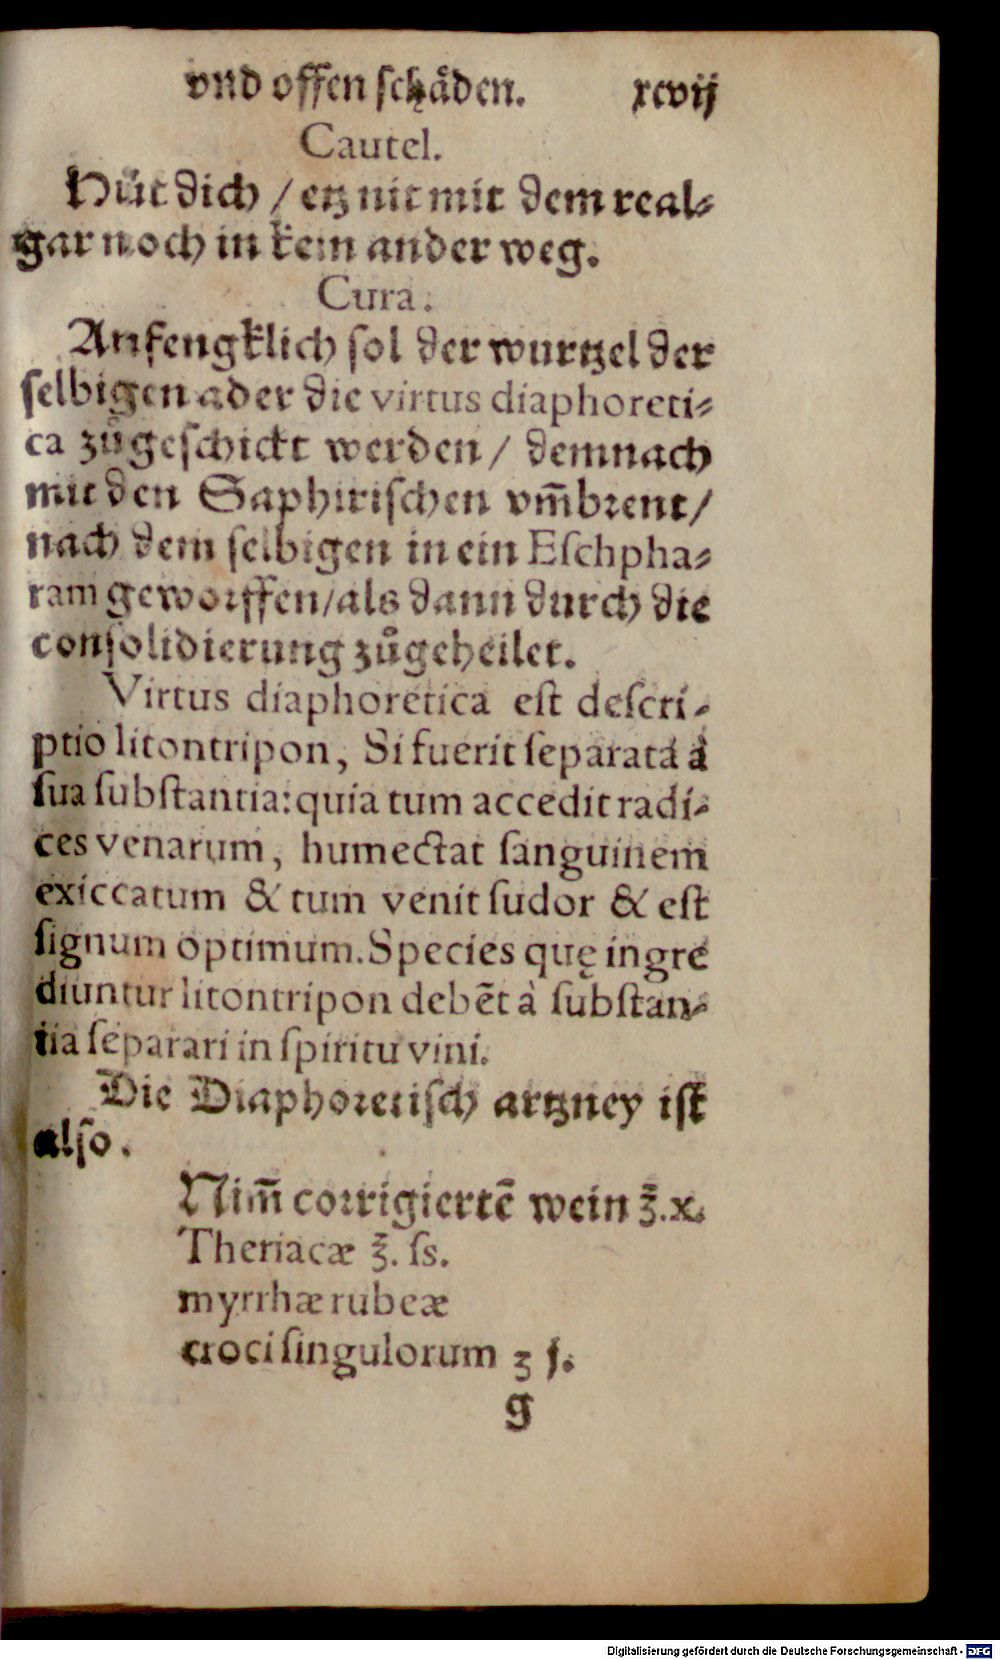 vnd offen schåden. xcvij
Cautel.
Hüt dich / etz nit mit dem real⸗
gar noch in kein ander weg.
Cura.
Anfengklich sol der wurtzel der
selbigen ader die virtus diaphoreti⸗
ca zůgeschickt werden / demnach
mit den Saphirischen vm̃brent /
nach dem selbigen in ein Eſchpha⸗
ram geworffen / als dann durch die
consolidierung zůgeheilet.
Virtus diaphoretica eſt deſcri⸗
ptio litontripon, Si fuerit ſeparata à
ſua ſubſtantia: quia tum accedit radi⸗
ces venarum, humectat ſanguinem
exiccatum & tum venit ſudor & eſt
ſignum optimum. Species quę ingre
diuntur litontripon debēt à ſubſtan⸗
tia ſeparari in ſpiritu vini.
Die Diaphoretisch artzney ist
also.
Nim̃ corrigiertē wein ʒ̃. x.
Theriacæ ʒ̃. ſs.
myrrhæ rubeæ
croci ſingulorum ʒ j.
g
Digitalisierung gefördert durch die Deutsche Forschungsgemeinschaft - DFG